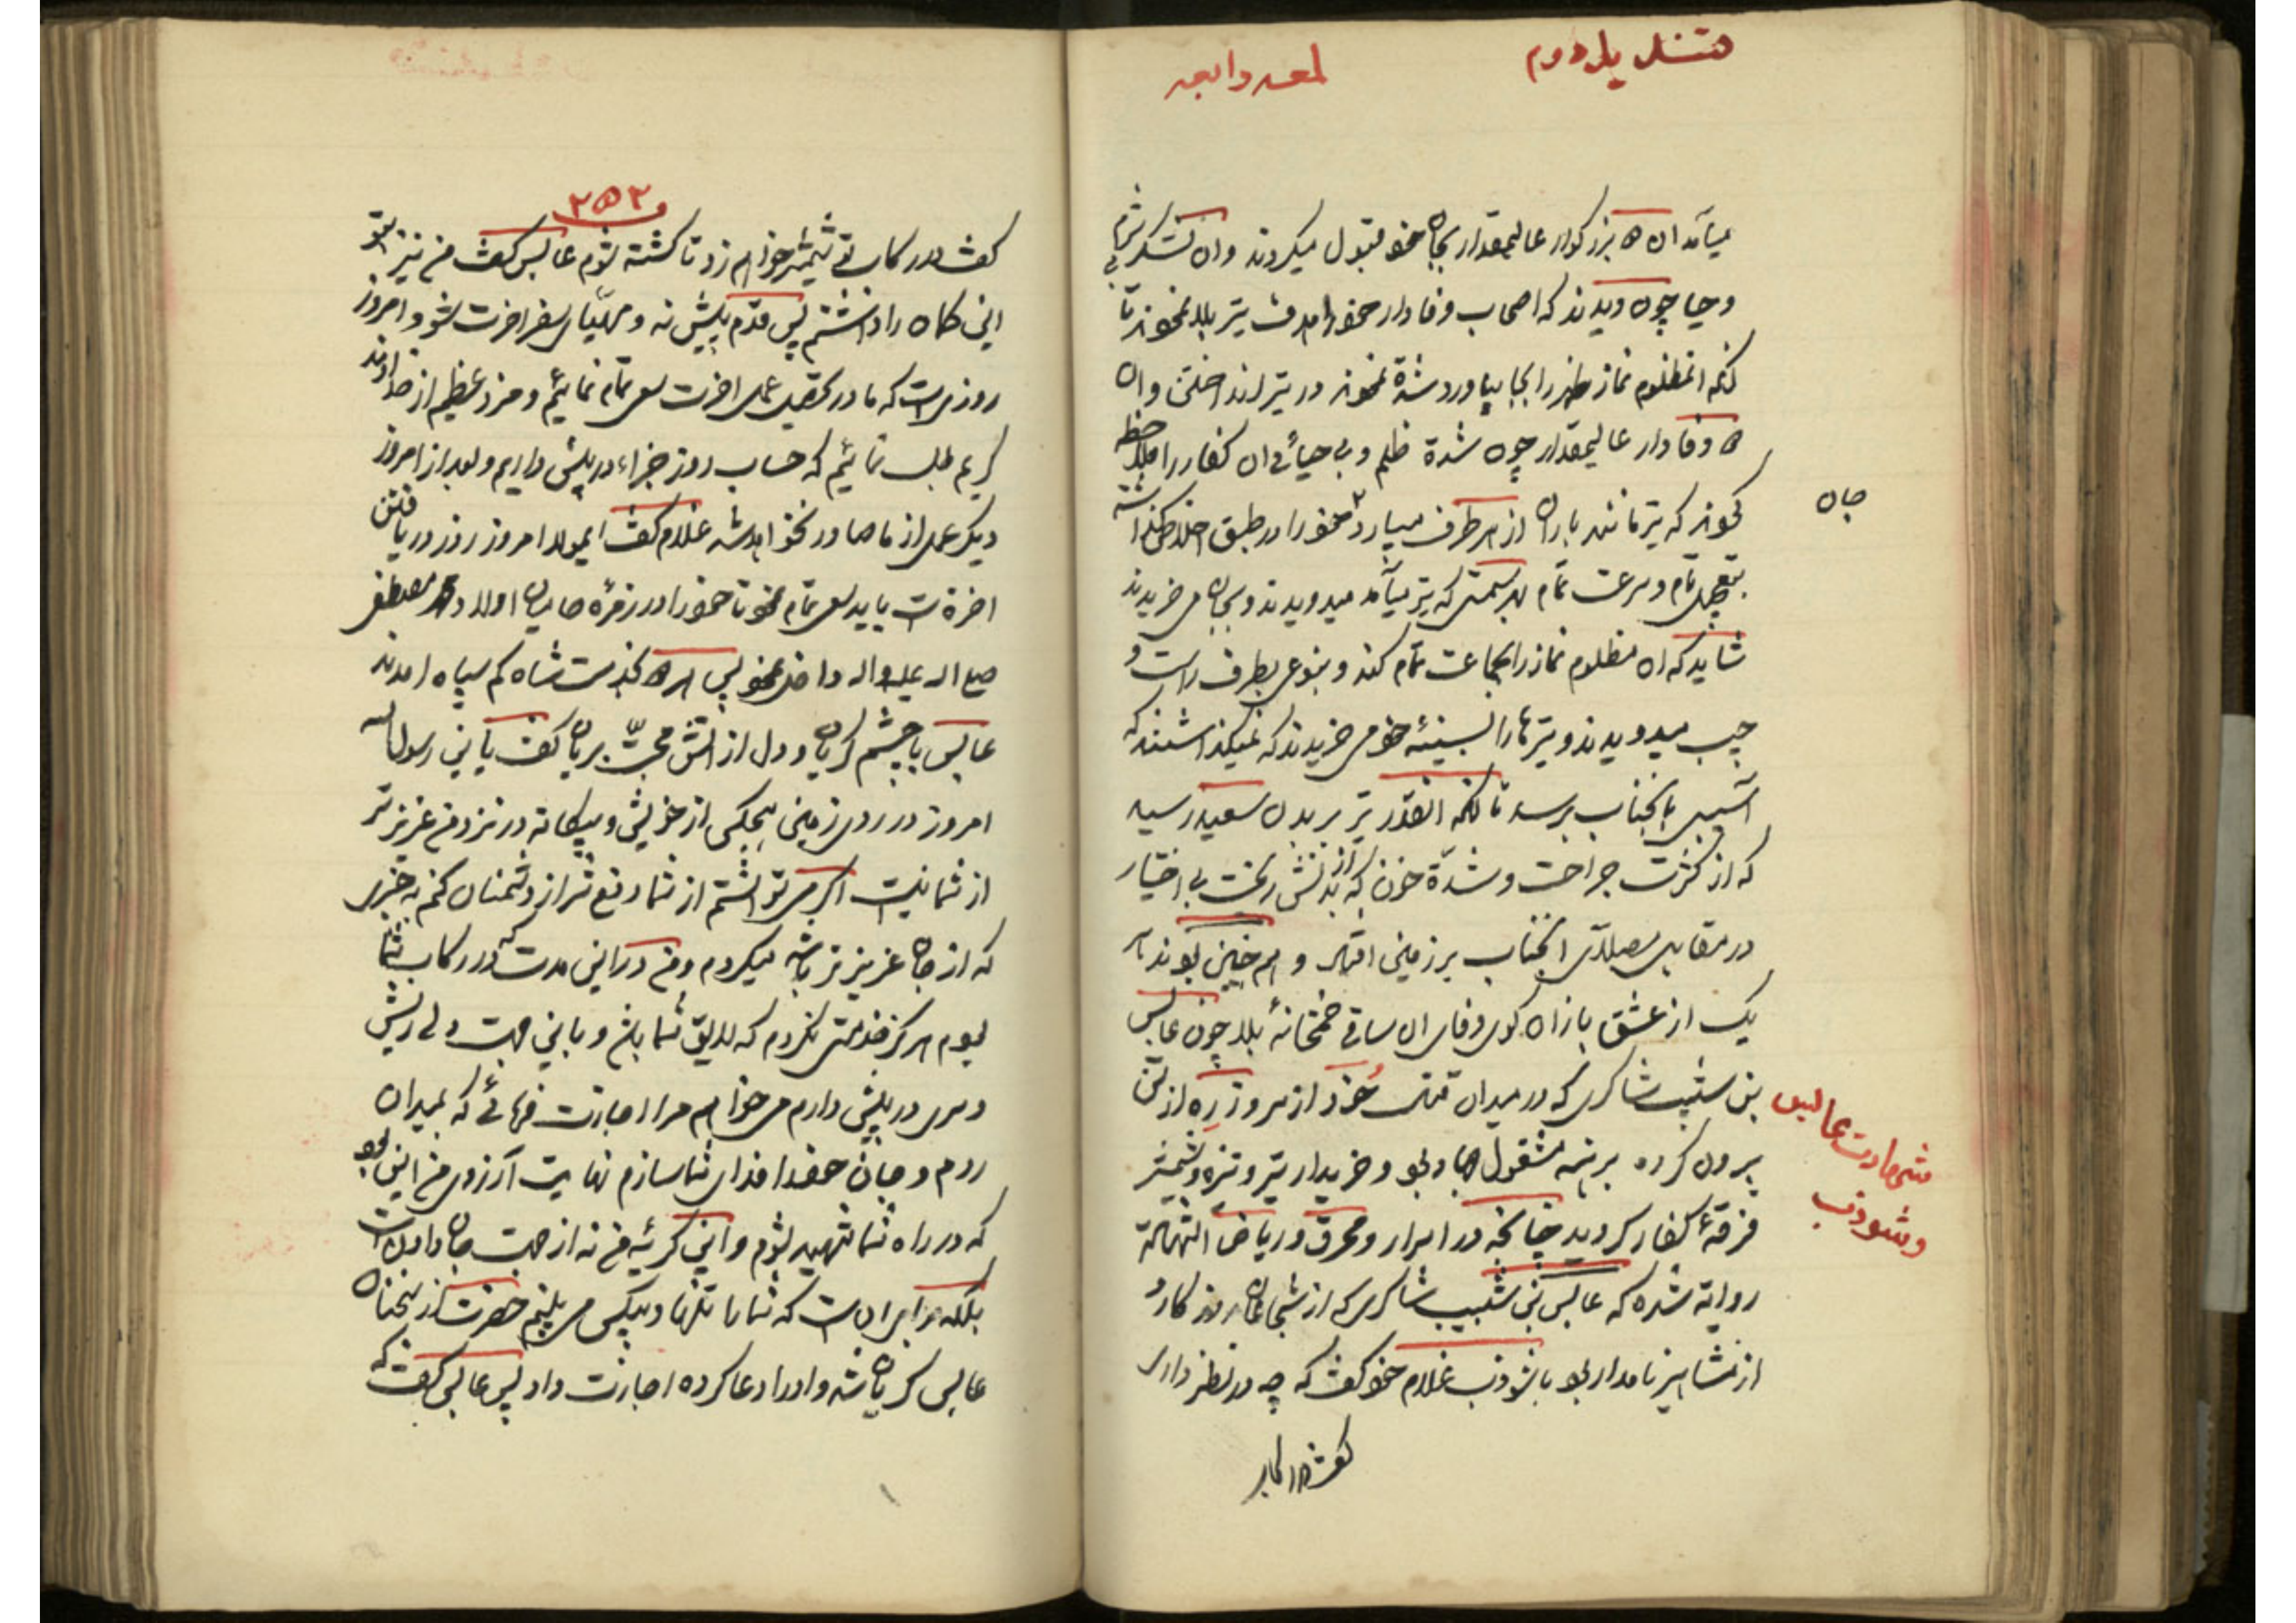 قندیل دوم
لمعه رابعه
میآمد آن بزرگوار عالیمقدار بجان خود قبول میکردند و آن لشکر بی شرم
و حیا چون دیدند که اصحاب وفادار خود را هدف تیر بلا نمودند تا
آنکه آنمظلوم نماز ظهر را بجا بیاورد شدة نمودند در تیر انداختن و آن
وفادار عالیمقدار چون شدة ظلم و بی حیائی آن کفار را ملاحظه
نمودند که تیر مانند باران از هر طرف میبارد خود را در طبق اخلاص گذاشته
جان
بتعجیل تمام و سرعت تمام بهر سمتی که تیر میآمد میدویدند و بجان می خریدند
شاید که آن مظلوم نماز را بجماعت تمام کند و بنوعی بطرف راست و
چپ میدویدند و تیرها را بسینهٔ خود می خریدند که نمیگذاشتند که
آسیبی بآنجناب برسد تا آنکه آنقدر تیر بر بدن سعید رسید
که از کثرت جراحت و شدّة خون که از بدنش ریخت بی اختیار
در مقابل مصلای آنجناب بر زمین افتاد و هم چنین بودند
یک یک از عشق بازان کوی وفای آن ساقی خمخانهٔ بلا چون عابس
بن شبیب شاکری که در میدان قتال خود از سر و زره از تن
شهادت عابس
و شوذب
بیرون کرده برهنه مشغول جهاد بود و خریدار تیر و نیزه و شمشیر
فرقهٔ کفار گردید چنانچه در ابرار و محرق و ریاض الشهادة
روایة شده که عابس بن شبیب شاکری که از شجاعان روزگار و
از مشاهیر نامدار بود با شوذب غلام خود گفت که چه در نظر داری
گفت در رکاب
۲۵۲
گفت در رکاب تو شمشیر خواهم زد تا کشته شوم عابس گفت من نیز بتو
این گمان را داشتم پس قدم پیش نه و مهیّای سفر آخرت شو و امروز
روزی است که ما در تحصیل عمل آخرت سعی تمام نمائیم و مزد عظیم از خداوند
کریم طلب نمائیم که حساب روز جزاء در پیش داریم و بعد از امروز
دیگر عملی از ما صادر نخواهد شد غلام گفت ایمولا امروز روز دریافتن
آخرة است باید سعی تمام نمود تا خود را در زمرهٔ حامیان اولاد محمد مصطفی
صلی الله علیه و اله داخل نمود پس هر دو بخدمت شاه کم سپاه امدند
عابس با چشم گریان و دل از آتش محبّت بریان گفت یا بن رسول الله
امروز در روی زمین هیچکس از خویش و بیگانه در نزد من عزیز تر
از شما نیست اگر می توانستم از شما دفع شر از دشمنان کنم به چیزی
که از جان عزیز تر باشد میکردم و من در این مدت که در رکاب شما
بودم هرگز خدمتی نکردم که لایق شما باشد و باین جهت دلی ریش
و سری در پیش دارم می خواهم مرا اجازت فرمائی که بمیدان
روم و جان خود را فدای شما سازم نهایت آرزوی من این بود
که در راه شما شهید شوم و این گریهٔ من نه از جهت جان دادن است
بلکه برای آن است که شما را تنها و بیکس می بینم حضرت از سخنان
عابس گریان شد و او را دعا کرده اجازت داد پس عابس گفت که